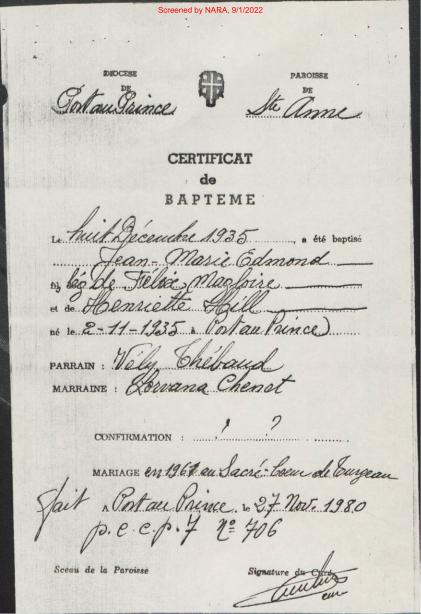 Screened by NARA, 9/1/2022
DIOCESE
DE
Port au Prince
PAROISSE
DE
Ste Anne
CERTIFICAT
de
BAPTEME
Le huit Décembre 1935, a été baptisé
Jean-Marie Edmond
fils lég de Félix Magloire
et de Henriette Hill
né le 2-11-1935 à Port au Prince
PARRAIN : Vély Thébaud
MARRAINE : Lorvana Chenet
CONFIRMATION : ? ?
MARIAGE en 1961 au Sacré-Coeur de Turgeau
fait A Port au Prince, le 27 Nov. 1980
p.c.c.p. 7 No 706
Sceau de la Paroisse
Signature du Curé